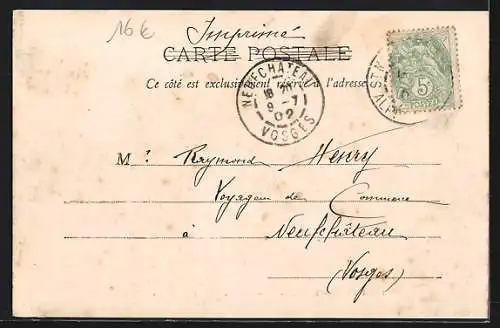 16 €
Imprimé
CARTE POSTALE
Ce côté est exclusivement réservé à l'adresse
NEUFCHATEAU
18
9-7
02
VOSGES
5
M. Raymond Henry
Voyageur de Commerce
à Neufchâteau
(Vosges)